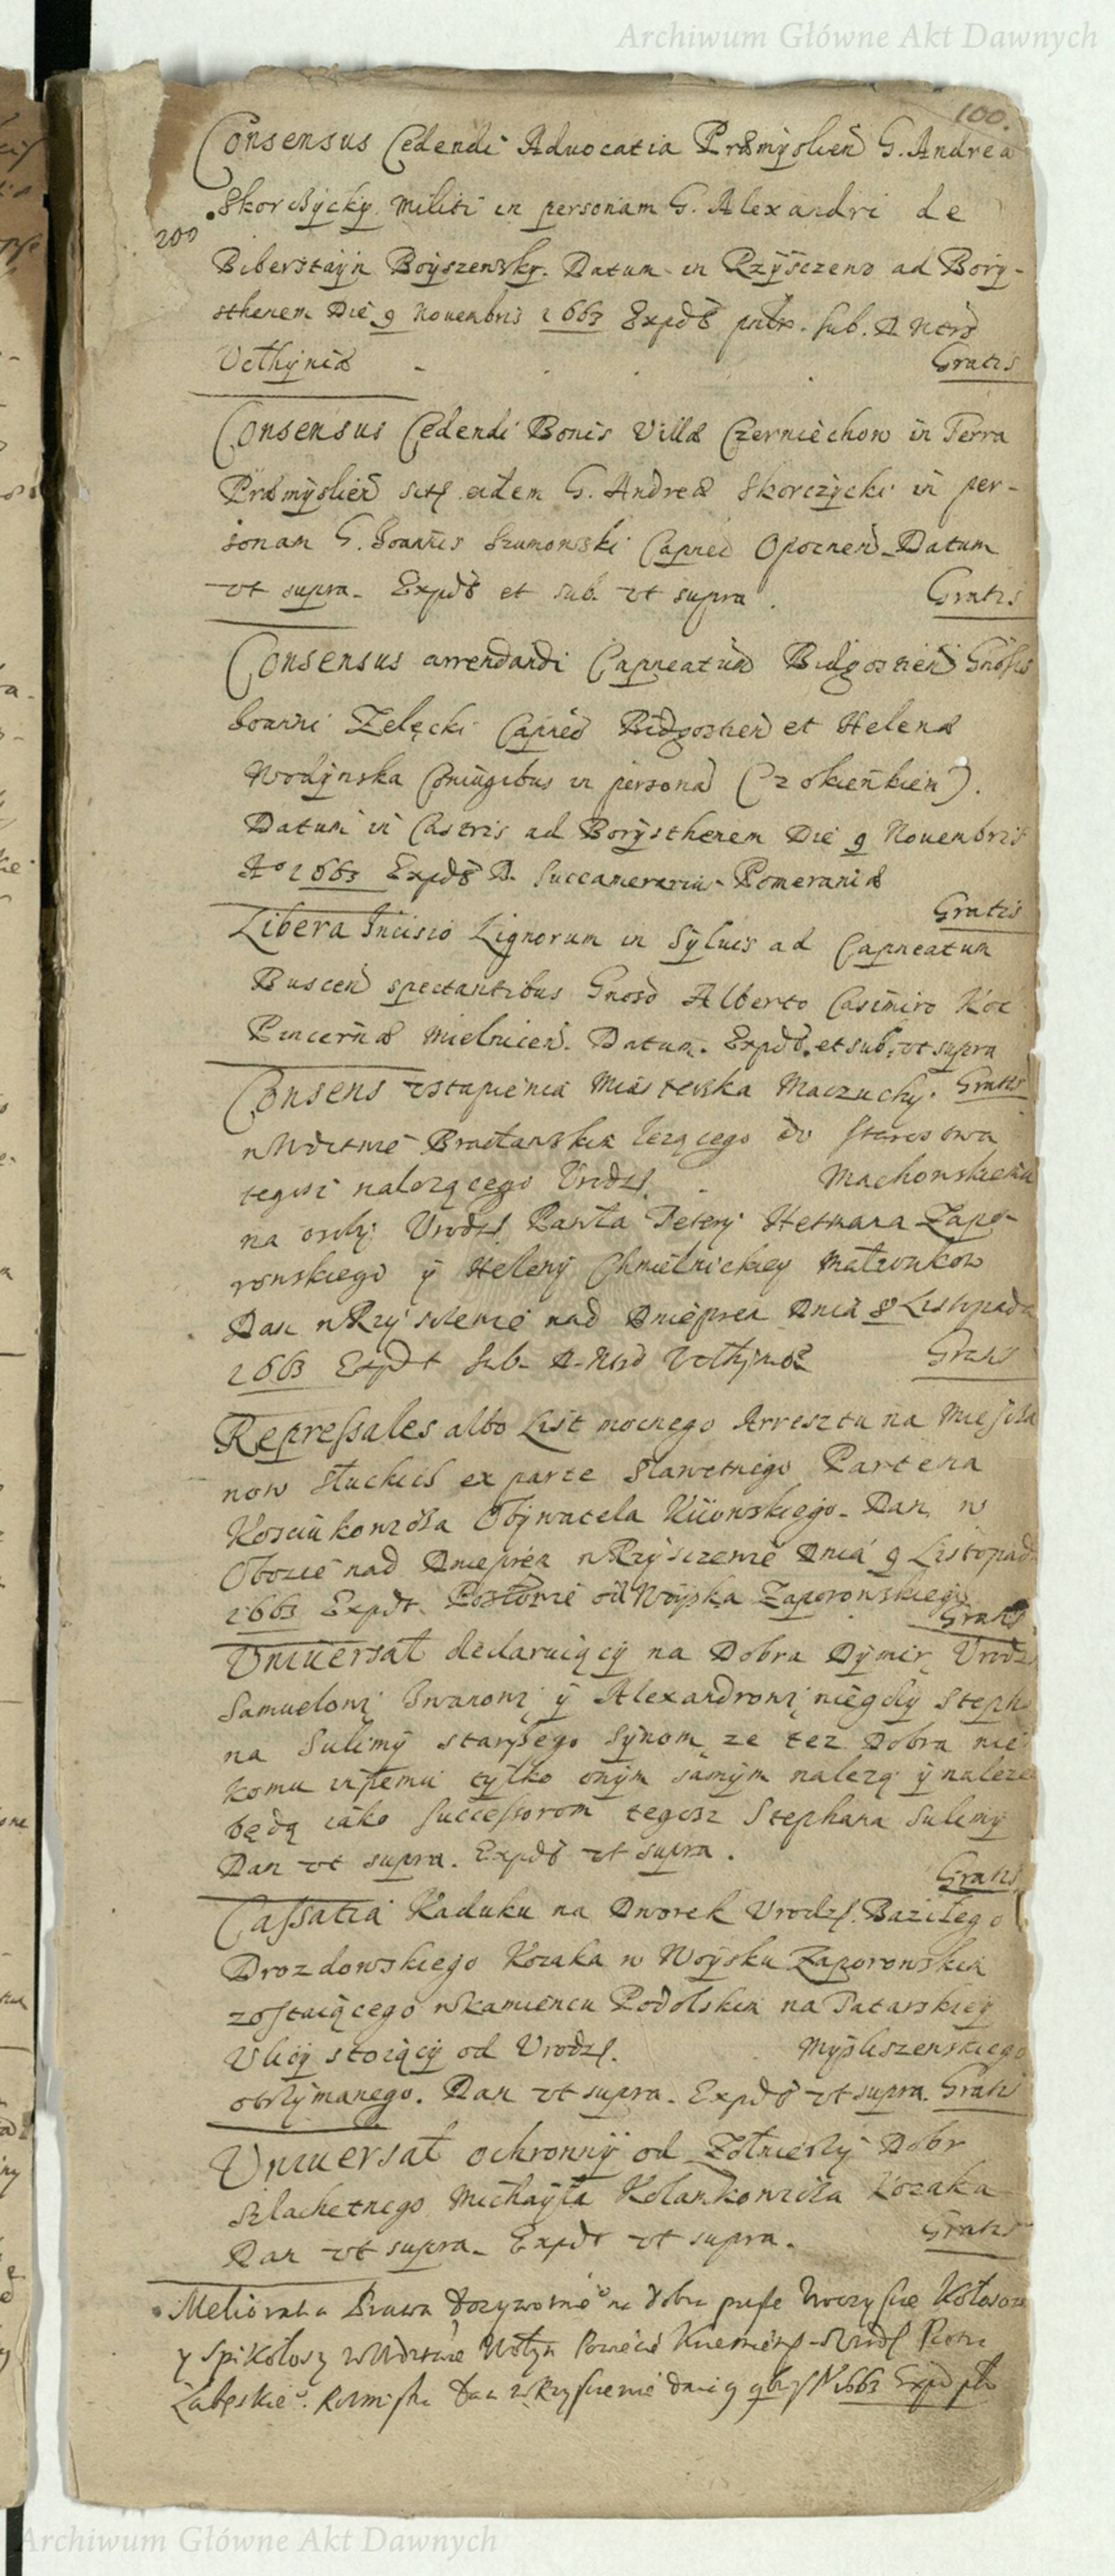 Archiwum Główne Akt Dawnych
100.
Consensus Cedendi Aduocatia Præmyslien G. Andreæ
Skorczycky Militi in personam G. Alexandri de
200
Biberstayn Boyszewsky. Datum in Rzysczew ad Bory-
sthenem Die 9 Nouembris 1663 Sub. R Ntrd
Vcthyniæ Gratis
Consensus Cedendi Bonis Villæ Czerniechow in Terra
Præmyslien eidem G. Andreæ Skorczycki in per-
sonam G. Joannis Szumowski Capneo Opocnen Datum
vt supra. Expdt et sub. vt supra. Gratis
Consensus arrendandi Capneatum Bidgostien Gnosis
Joanni Zelęcki Capneo Bidgostien et Helenæ
Wodynska Coniugibus in persona (Czokienkien).
Datum in Castris ad Borysthenem Die 9 Nouembris
Ao 1663 Expdt R. Succamerarius Pomeraniæ
Gratis
Libera Incisio Lignorum in Syluis ad Capneatum
Buscen spectantibus Gnoso Alberto Casimiro Koc
Pincernæ Mielnicen. Datum. Expdt. et sub. vt supra
Consens vstąpienia Miasteczka Maczuchy. Gratis
w Wdztwie Bracławskim lezącego do Starostwa
tegosz nalezącego Vrodz. Machowskiemu
na osoby Vrodz. Pawła Tetery Hetmana Zapo-
rowskiego y Heleny Chmielnickiey Małzonkow
Dan w Rzysczewie nad Dnieprem Dnia 8 Listopada
1663 Expdt Sub. R. Ntrd Vcthyniæ Gratis
Repressales albo List mocnego Arresztu na Miescza
now Słuckich ex parte Sławetnego Partena
Kosciukowicza Obywatela Kiiowskiego. Dan w
Obozie nad Dnieprem w Rzysczewie Dnia 9 Listopad
1663 Expdt. Posłowie od Woyska Zaporowskiego
Gratis
Vniuersał declaruiący na Dobra Dymir Vrodz
Samuelowi Iwanowi y Alexandrowi niegdy Steph
na Sulimy starszego Synom, ze tez Dobra nie
komu inszemu tylko onym samym nalezą y nalezec
będą iako Successorom tegosz Stephana Sulimy
Dan vt supra. Expdt vt supra.
Gratis
Cassatia Kaduku na Dworek Vrodz. Baziłego
Drozdowskiego Kozaka w Woysku Zaporowskim
zostaiącego w Kamiencu Podolskim na Tatarskiey
Vlicy stoiący od Vrodz. Mysliszewskiego
otrzymanego. Dan vt supra. Expdt vt supra. Gratis
Vniuersał ochronny od Zołnierzy Dobr
Szlachetnego Michayła Kolankowicza Kozaka
Dan vt supra. Expdt vt supra. Gratis
Melioratia Prawa Dozywotnie na dobra
y Spikołosy w Wdztwie Wołyn Powiecie Krzemien Vrodz Piotr
Łabęskie. Rotmistr Dan w Rzysczewie dnia 9 1663 Expd
Archiwum Główne Akt Dawnych